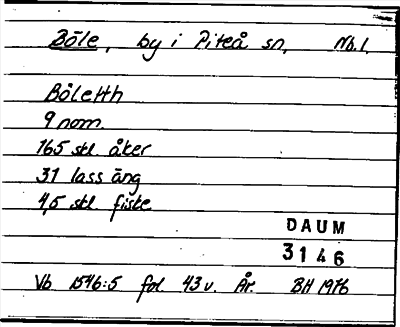 Böle, by i Piteå sn, Nb.l.
Böletth
9 nom.
165 skl. åker
31 lass äng
4,5 skl fiske
DAUM
3146
Vb 1546:5 fol. 43v. År. BH 1976